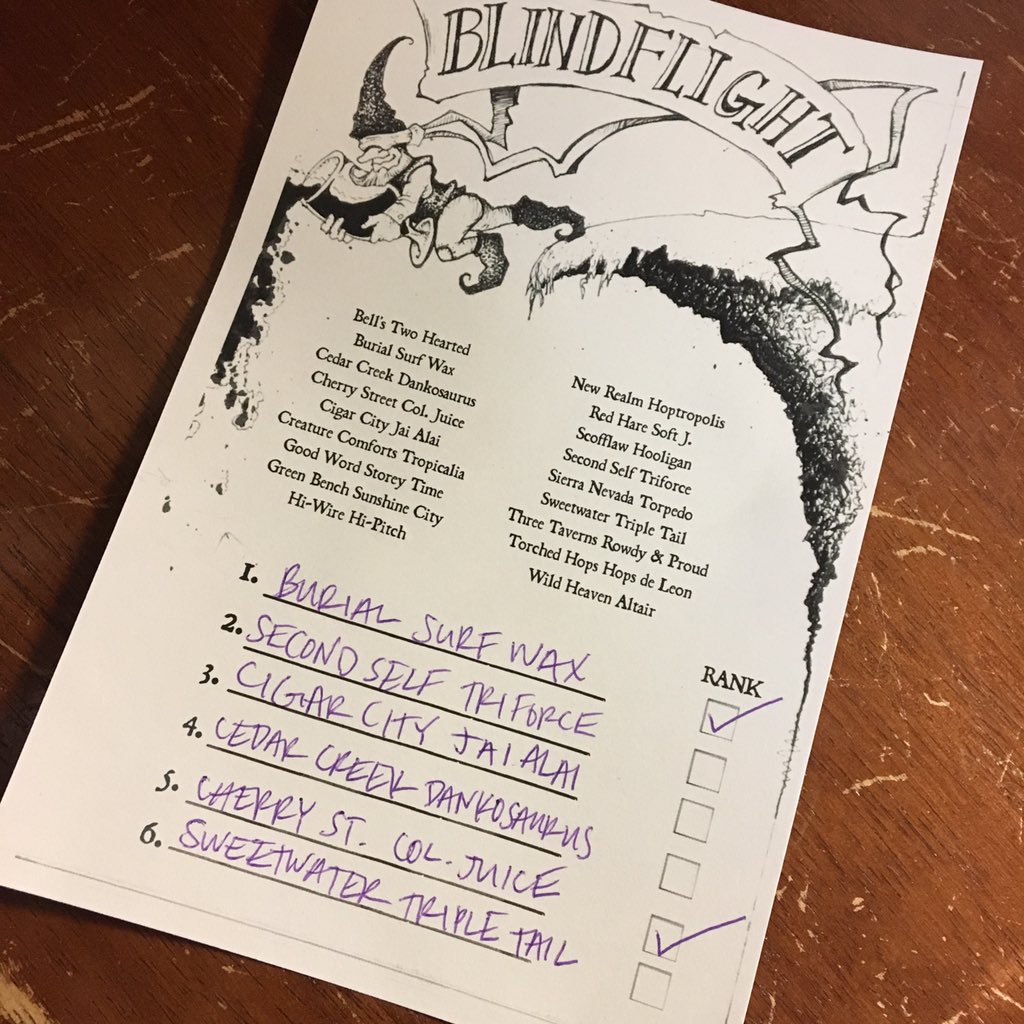 BLINDFLIGHT
Bell's Two Hearted
Burial Surf Wax
Cedar Creek Dankosaurus
Cherry Street Col. Juice
Cigar City Jai Alai
Creature Comforts Tropicalia
Good Word Storey Time
Green Bench Sunshine City
Hi-Wire Hi-Pitch
New Realm Hoptropolis
Red Hare Soft J.
Scofflaw Hooligan
Second Self Triforce
Sierra Nevada Torpedo
Sweetwater Triple Tail
Three Taverns Rowdy & Proud
Torched Hops Hops de Leon
Wild Heaven Altair
RANK
1. BURIAL SURF WAX
2. SECOND SELF TRIFORCE
3. CIGAR CITY JAI ALAI
4. CEDAR CREEK DANKOSAURUS
5. CHERRY ST. COL. JUICE
6. SWEETWATER TRIPLE TAIL